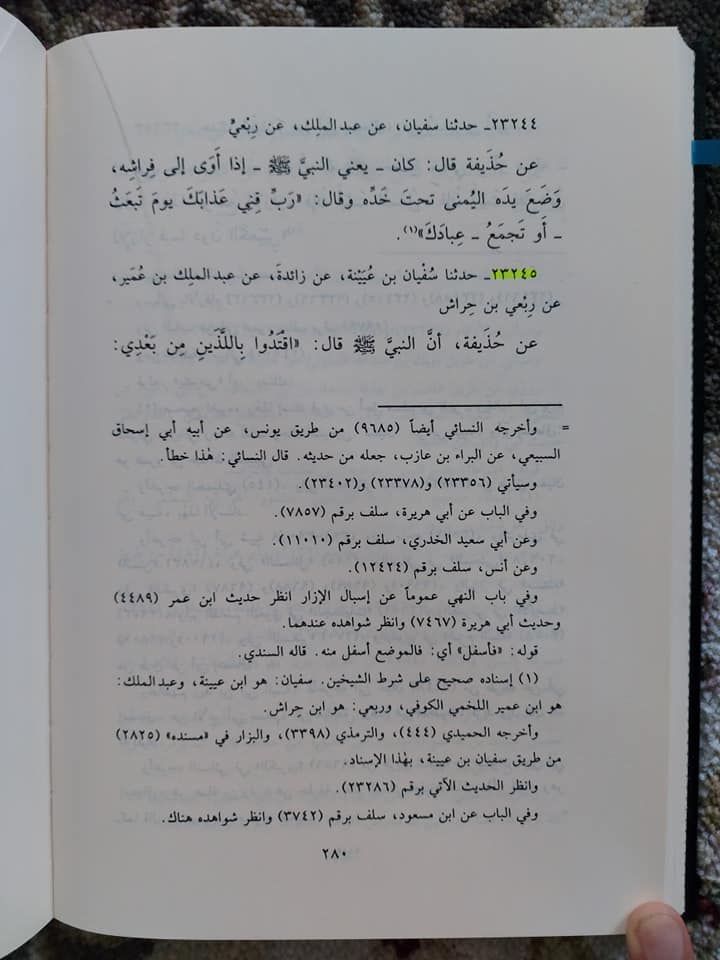 ٢٣٢٤٤ـ حدثنا سفيان، عن عبد الملِك، عن رِبْعيٍّ
عن حُذَيفة قال: كان ـ يعني النبيَّ ﷺ ـ إذا أَوَى إلى فِراشِه،
وَضَعَ يدَه اليُمنى تحتَ خَدِّه وقال: «رَبِّ قِني عَذابَكَ يومَ تَبعَثُ
ـ أَو تَجمَعُ ـ عِبادَكَ»(١).
٢٣٢٤٥ـ حدثنا سُفْيان بن عُيَيْنة، عن زائدةَ، عن عبد الملِك بن عُمَير،
عن رِبْعي بن حِراش
عن حُذَيفة، أنَّ النبيَّ ﷺ قال: «اقْتَدُوا بِاللَّذَينِ مِن بَعْدِي:
= وأخرجه النسائي أيضاً (٩٦٨٥) من طريق يونس، عن أبيه أبي إسحاق
السبيعي، عن البراء بن عازب، جعله من حديثه. قال النسائي: هٰذا خطأ.
وسيأتي (٢٣٣٥٦) و(٢٣٣٧٨) و(٢٣٤٠٢).
وفي الباب عن أبي هريرة، سلف برقم (٧٨٥٧).
وعن أبي سعيد الخدري، سلف برقم (١١٠١٠).
وعن أنس، سلف برقم (١٢٤٢٤).
وفي باب النهي عموماً عن إسبال الإزار انظر حديث ابن عمر (٤٤٨٩)
وحديث أبي هريرة (٧٤٦٧) وانظر شواهده عندهما.
قوله: «فأسفل» أي: فالموضع أسفل منه. قاله السندي.
(١) إسناده صحيح على شرط الشيخين. سفيان: هو ابن عيينة، وعبد الملك:
هو ابن عمير اللخمي الكوفي، وربعي: هو ابن حِراش.
وأخرجه الحميدي (٤٤٤)، والترمذي (٣٣٩٨)، والبزار في «مسنده» (٢٨٢٥)
من طريق سفيان بن عيينة، بهٰذا الإسناد.
وانظر الحديث الآتي برقم (٢٣٢٨٦).
وفي الباب عن ابن مسعود، سلف برقم (٣٧٤٢) وانظر شواهده هناك.
٢٨٠